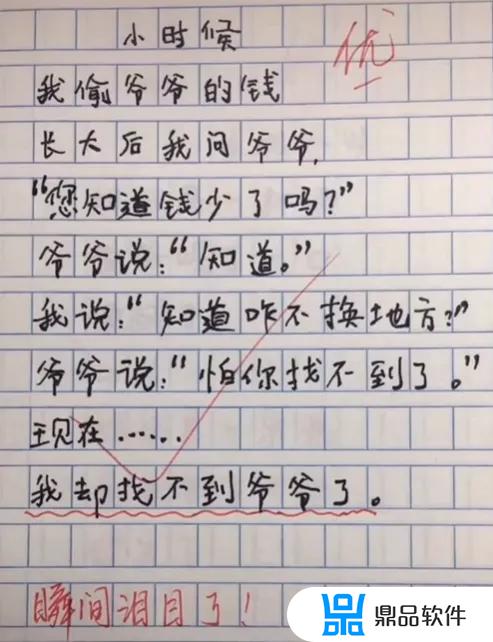 小时候
优
我偷爷爷的钱
长大后我问爷爷,
“您知道钱少了吗?”
爷爷说:“知道。”
我说:“知道咋不换地方?”
爷爷说:“怕你找不到了。”
现在……
我却找不到爷爷了。
瞬间泪目了!
鼎品软件